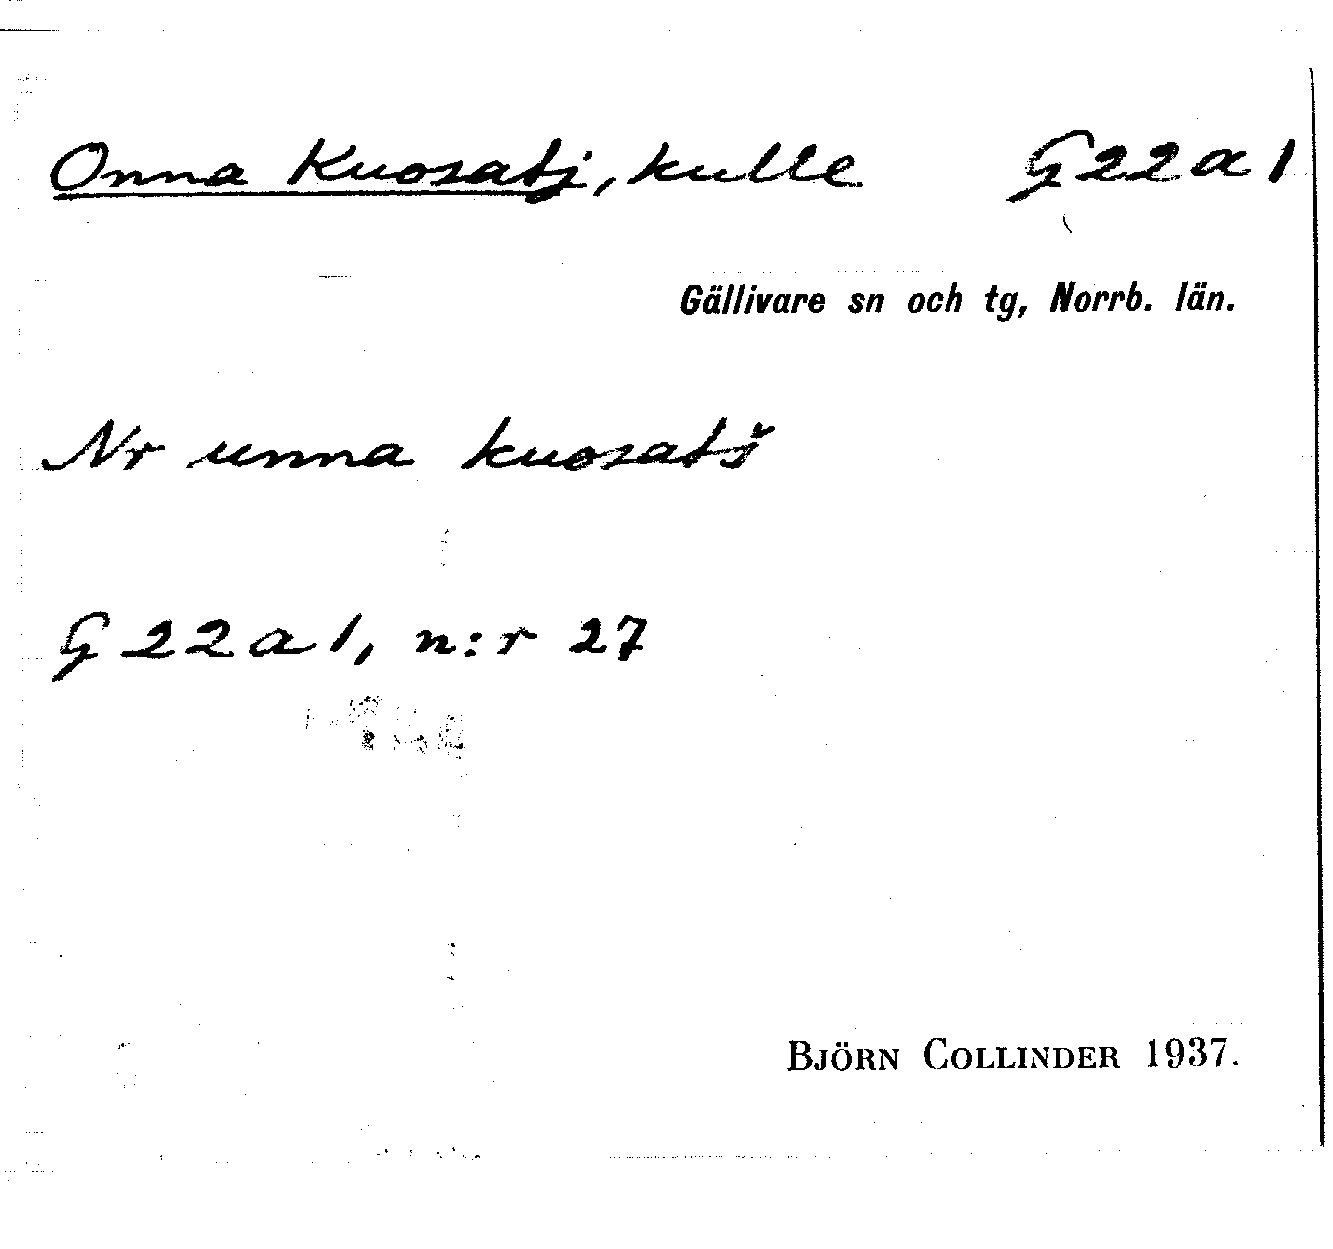 Onna Kuosatj, kulle G22a1
Gällivare sn och tg, Norrb. län.
Nr unna kuosatš
G22a1, n:r 27
BJÖRN COLLINDER 1937.